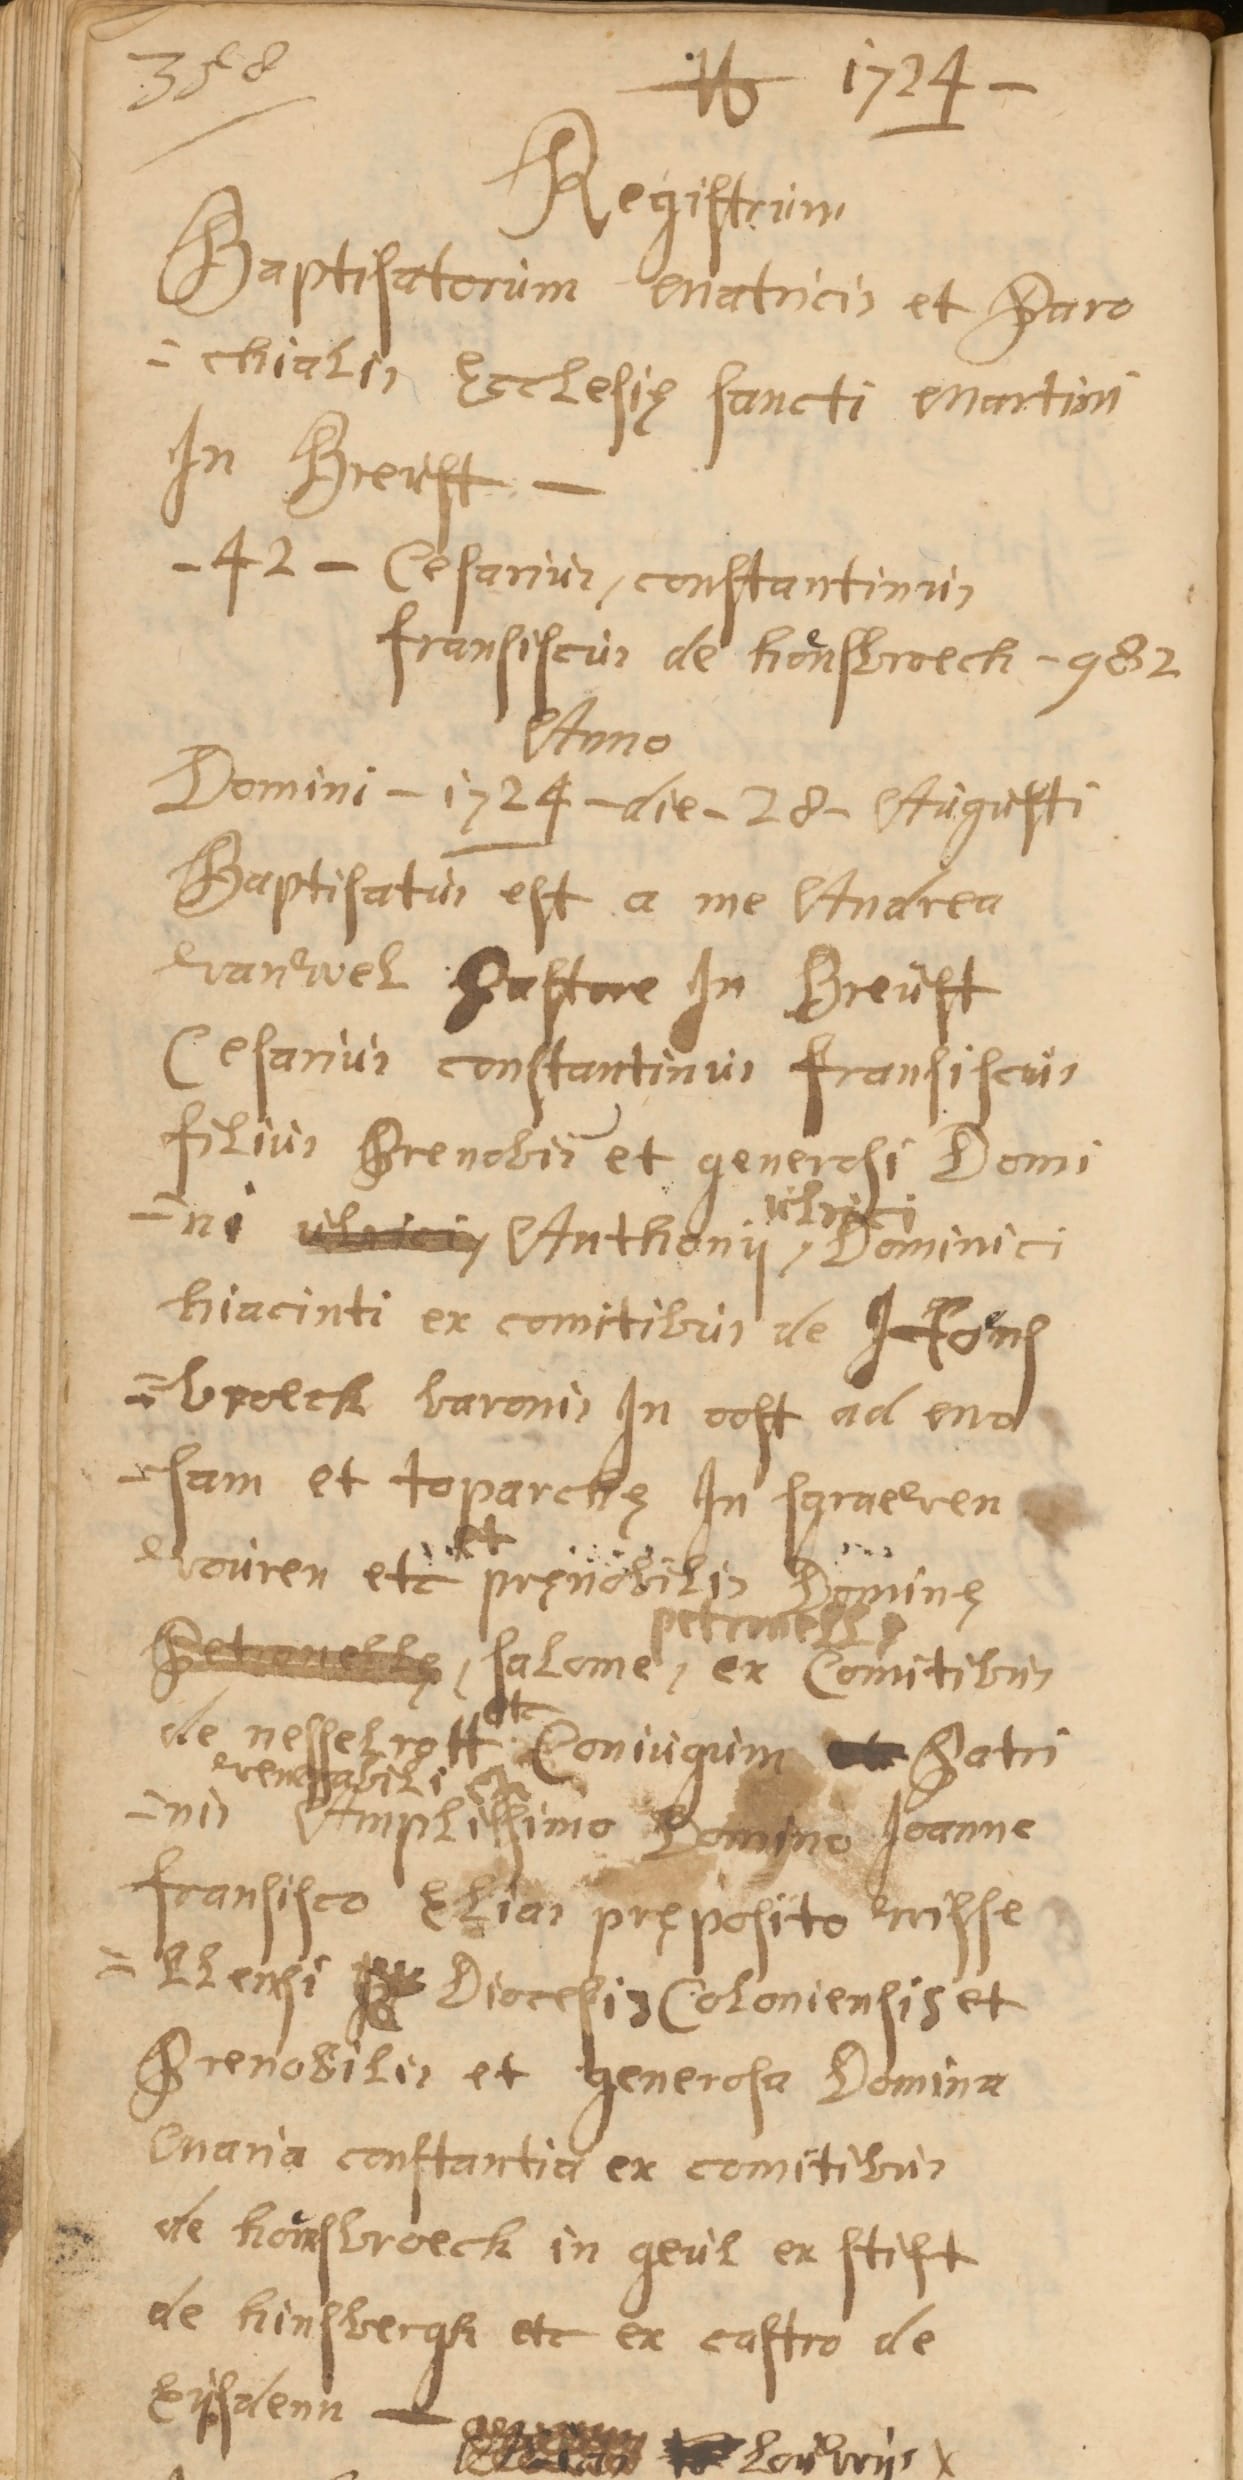 358 16 1724 -
Registrum
Baptisatorum Matricis et Paro
= chialis Ecclesię sancti Martini
In Breüst —
- 42 - Cesarius, constantinus
fransiscus de hoensbroech - 982
Anno
Domini - 1724 - die - 28 - Augusti
Baptisatus est a me Andrea
van wel Pastore In Breüst
Cesarius constantinus fransiscus
filius Prenobis et generosi Domi
= ni ulrici, Anthonij, ulrici Dominici
hiacinti ex comitibus de Hoens
= broeck baronis In oost ad mo
- sam et toparchę In sgraeven
vouren etc et pręnobilis Dominę
Petronellę, salome, petronellę ex Comitibus
de nesselrott etc Coniugum Patri
= nis venerabili et Amplissimo Domino Joanne
fransisco Elias pręposito wisse
= llensi Diocesis Coloniensis et
Prenobilis et generosa Domina
Maria constantia ex comitibus
de hoensbroeck in geul ex stift
de hinsbergh etc ex castro de
Eijsdenn —